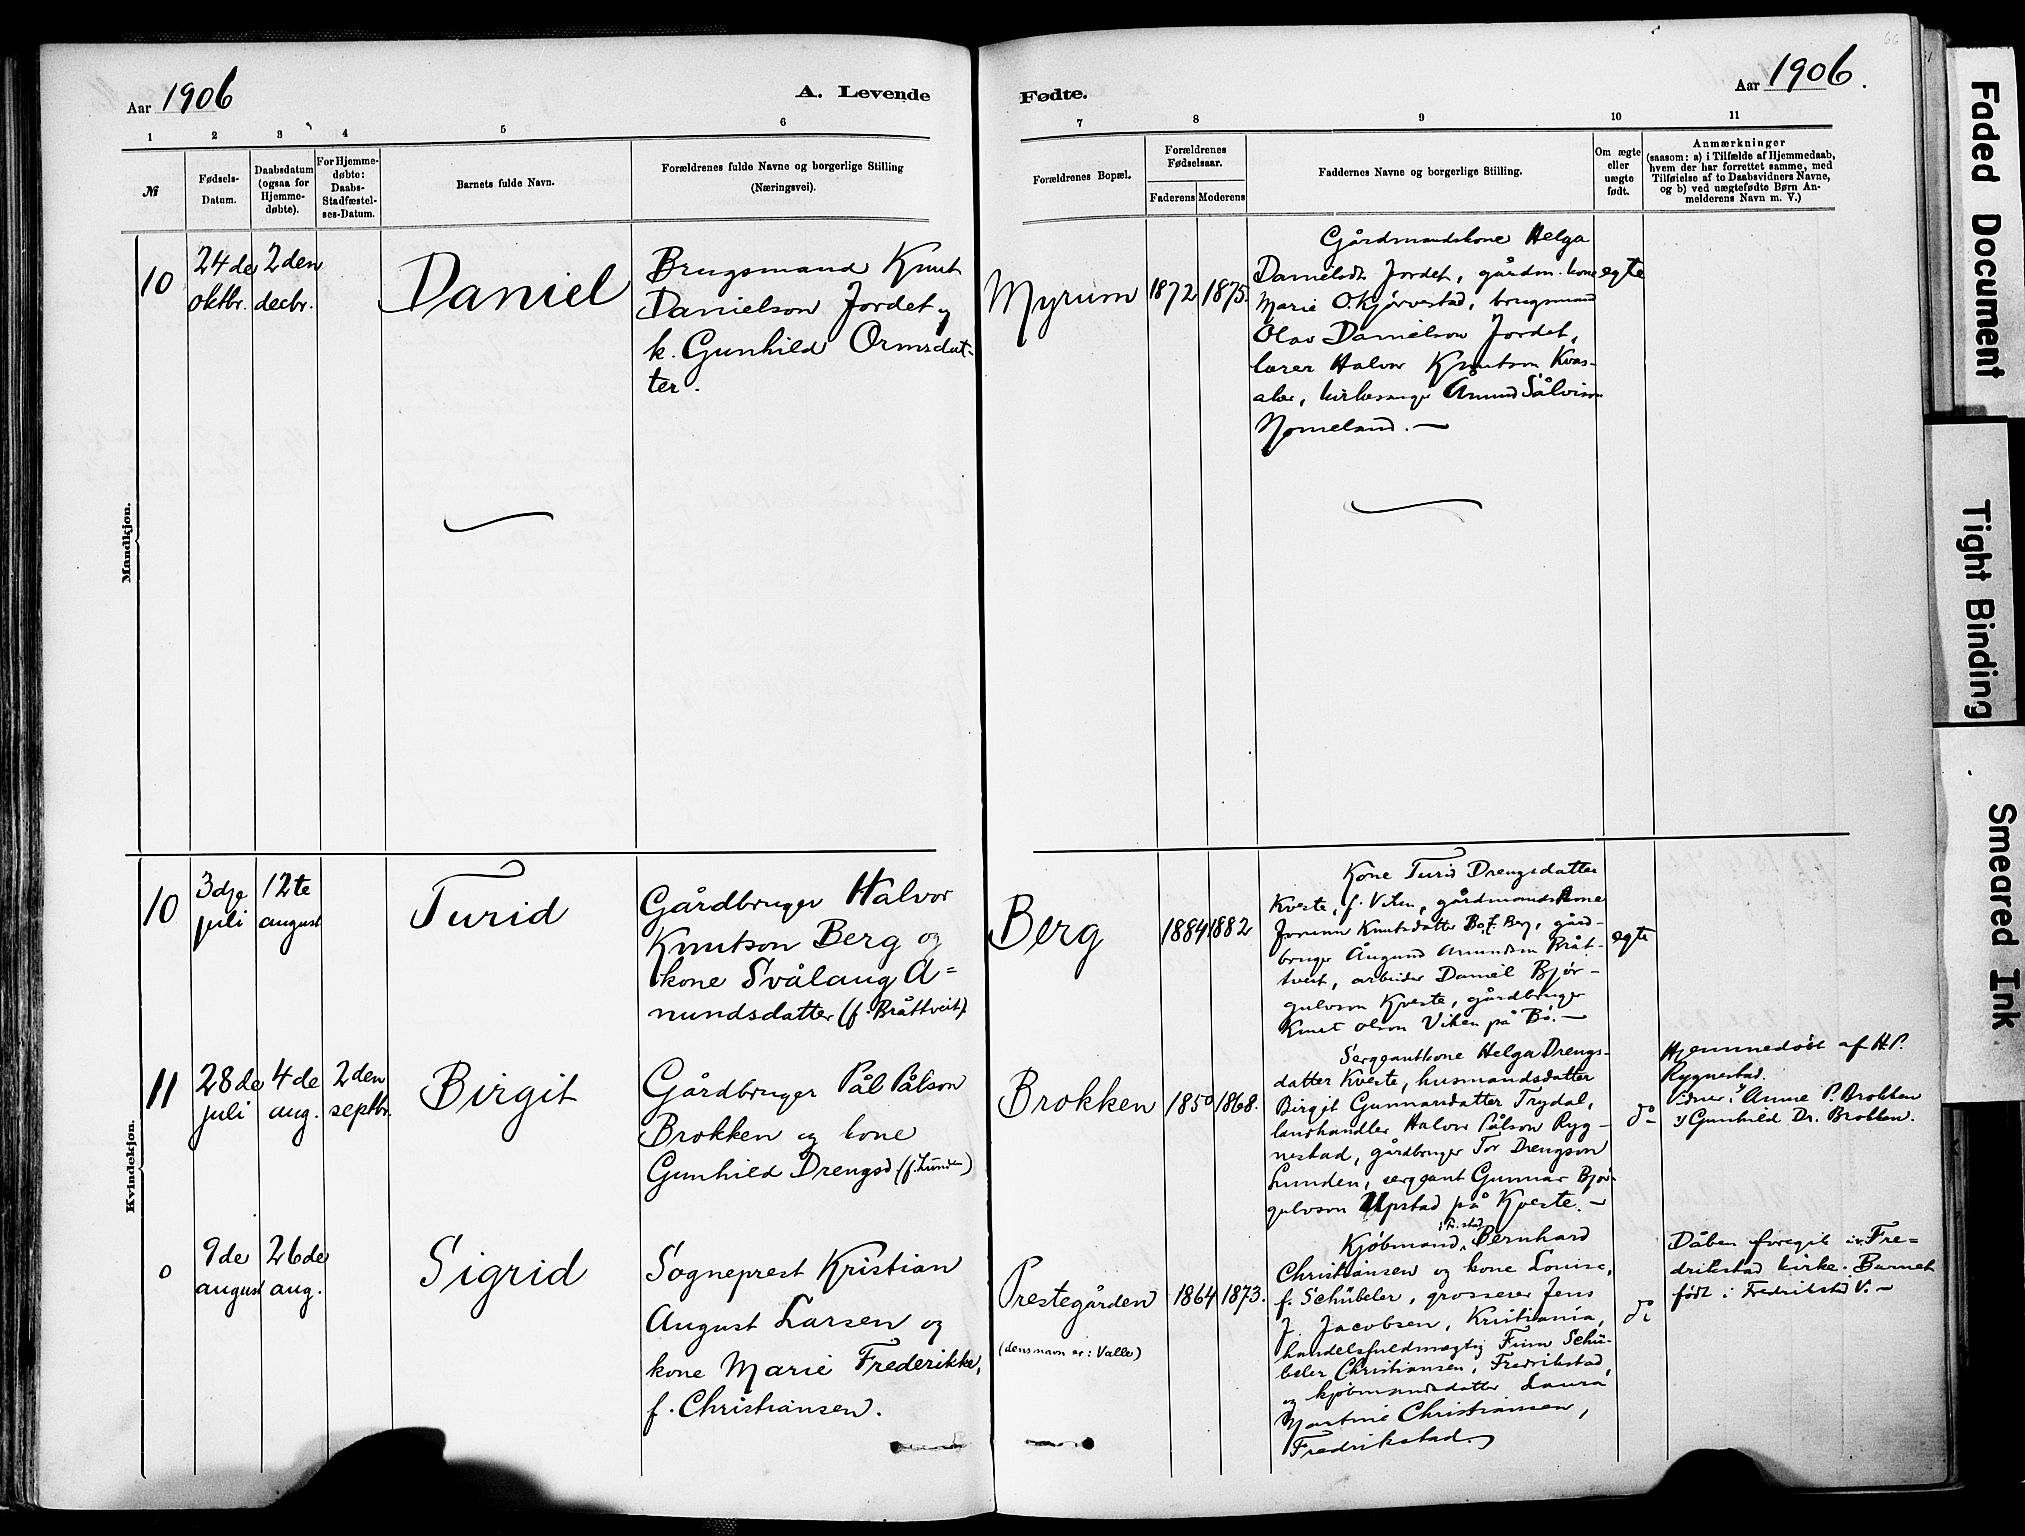 Aar 1906
A. Levende
Fødte.
Aar 1906.
1
2
3
4
5
6
7
8
9
10
11
№
Fødsels-
Datum.
Daabsdatum
(ogsaa for
Hjemme-
døbte).
For Hjemme-
døbte:
Daabs-
Stadfæstel-
ses-Datum.
Barnets fulde Navn.
Forældrenes fulde Navne og borgerlige Stilling
(Næringsvei).
Forældrenes Bopæl.
Forældrenes
Fødselsaar.
Faderens
Moderens
Faddernes Navne og borgerlige Stilling.
Om ægte
eller
uægte
født.
Anmærkninger
(saasom: a) i Tilfælde af Hjemmedaab,
hvem der har forrettet samme, med
Tilføielse af to Daabsvidners Navne,
og b) ved uægtefødte Børn An-
melderens Navn m. V.)
Mandkjøn.
10
24de
oktbr.
2den
decbr.
Daniel
Brugsmand Knut
Danielson Jordet og
k. Gunhild Ormsdat-
ter.
Myrum
1872
1875.
Gårdmandskone Helga
Danielsdt. Jordet, gårdm. kone
Marie O. Kjørvestad, brugsmand
Olav Danielson Jordet,
lærer Halvor Knutson Kvas-
aker, kirkesanger Åmund Sålvison
Nomeland. —
egte
Kvindekjøn.
10
3dje
juli
12te
august
Turid
Gårdbruger Halvor
Knutson Berg og
kone Svålaug A=
nundsdatter (f. Bråttveit)
Berg
1884
1882
Kone Turid Drengsdatter
Kveste, f. Viken, gårdmandskone
Jorunn Knutsdatter Bø f. Berg, gård-
bruger Ångund Anundson Bråt-
tveit, arbeider Daniel Bjør-
gulvson Kveste, gårdbruger
Knut Olson Viken på Bø. —
egte
11
28de
juli
4de
aug.
2den
septbr.
Birgit
Gårdbruger Pål Pålson
Brokken og kone
Gunhild Drengsd. (f. Lunden)
Brokken
1850
1868.
Serggantkone Helga Drengs-
datter Kveste, husmandsdatter
Birgit Gunnarsdatter Trydal,
landhandler Halvor Pålson Ryg-
nestad, gårdbruger Tor Drengson
Lunden, serggant Gunnar Bjør-
gulvson Upstad på Kveste. —
do
Hjemmedøbt af H. P.
Rygnestad.
Vidner: 1) Anne P. Brokken
2) Gunhild Dr. Brokken.
0
9de
august
26de
aug.
Sigrid
Sogneprest Kristian
August Larsen og
kone Marie Frederikke,
f. Christiansen.
Prestegården
(dens navn er: Valle)
1864
1873.
Kjøbmand i Fr.stad Bernhard
Christiansen og kone Louise,
f. Schübeler, grosserer Jens
J. Jacobsen, Kristiania,
handelsfuldmægtig Finn Schü-
beler Christiansen, Fredrikstad,
og kjøbmandsdatter Laura
Martine Christiansen,
Fredrikstad.
do
Dåben foregik i v. Fre=
drikstad kirke. Barnet
født i Fredrikstad V. —
66
Faded Document
Tight Binding
Smeared Ink